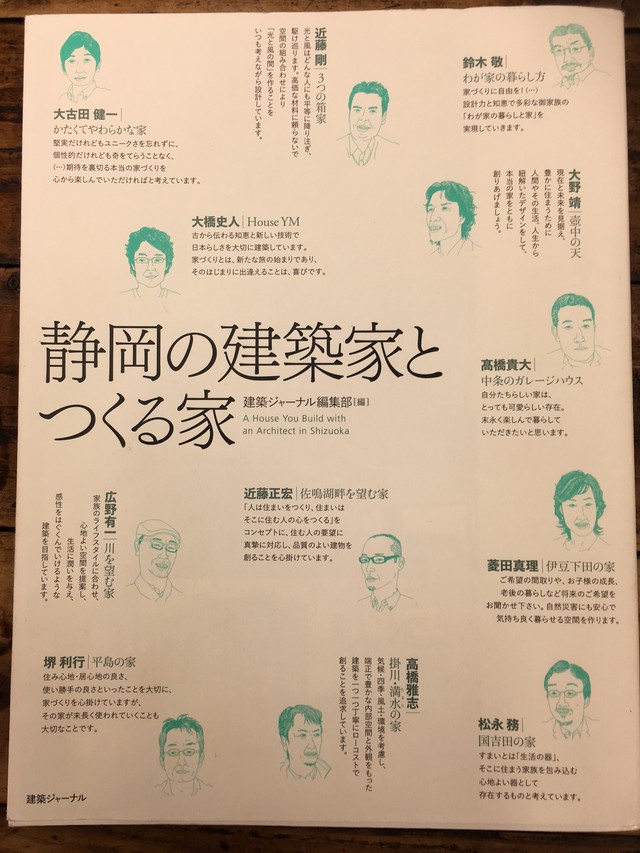 大古田 健一|
かたくてやわらかな家
堅実だけれどもユニークさを忘れずに、
個性的だけれども奇をてらうことなく、
(…)期待を裏切る本当の家づくりを
心から楽しんでいただければと考えています。
近藤 剛|3つの箱家
光と風はどんな人にも平等に降り注ぎ、
駆け巡ります。高価な材料に頼らないで
空間の組み合わせにより
「光と風の間」を作ることを
いつも考えながら設計しています。
鈴木 敬|
わが家の暮らし方
家づくりに自由を!(…)
設計力と知恵で多彩な御家族の
「わが家の暮らしと家」を
実現していきます。
大野 靖|壺中の天
現在と未来を見据え、
豊かに住まうために
人間やその生活、人生から
紐解いたデザインをして、
本当の家をともに
創りあげましょう。
大橋史人|House YM
古から伝わる知恵と新しい技術で
日本らしさを大切に建築しています。
家づくりとは、新たな旅の始まりであり、
そのはじまりに出逢えることは、喜びです。
静岡の建築家と
つくる家
建築ジャーナル編集部[編]
A House You Build with
an Architect in Shizuoka
髙橋貴大|
中条のガレージハウス
自分たちらしい家は、
とっても可愛らしい存在。
末永く楽しんで暮らして
いただきたいと思います。
広野有一|川を望む家
家族のライフスタイルに合わせ、
心地よい空間を提案し、
生活に潤いを与え、
感性をはぐくんでいけるような
建築を目指しています。
近藤正宏|佐鳴湖畔を望む家
「人は住まいをつくり、住まいは
そこに住む人の心をつくる」を
コンセプトに、住む人の要望に
真摯に対応し、品質のよい建物を
創ることを心掛けています。
菱田真理|伊豆下田の家
ご希望の間取りや、お子様の成長、
老後の暮らしなど将来のご希望を
お聞かせ下さい。自然災害にも安心で
気持ち良く暮らせる空間を作ります。
堺 利行|平島の家
住み心地・居心地の良さ、
使い勝手の良さといったことを大切に、
家づくりを心掛けていますが、
その家が末長く使われていくことも
大切なことです。
高橋雅志|
掛川・満水の家
気候・四季・風土・環境を考慮し、
端正で豊かな内部空間と外観をもった
建築を一つ一つ丁寧にローコストで
創ることを追求しています。
松永 務|
国吉田の家
すまいとは「生活の器」、
そこに住まう家族を包み込む
心地よい器として
存在するものと考えています。
建築ジャーナル